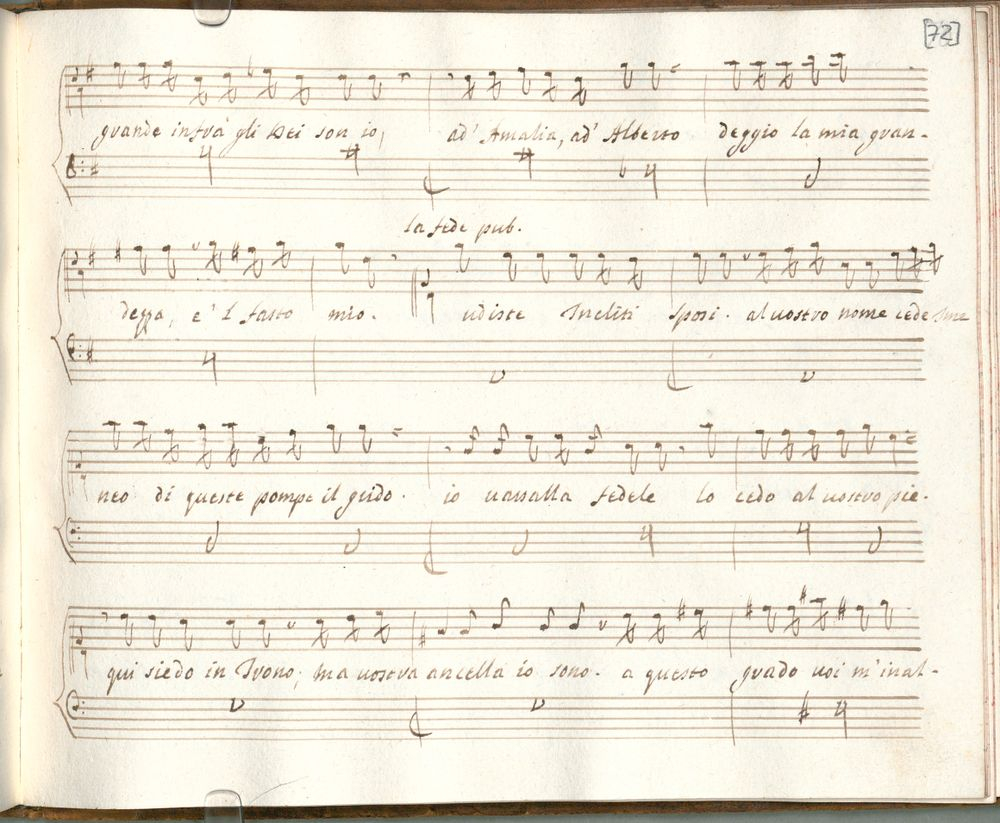 [72]
grande infra gli Dei son io, ad' Amalia, ad' Alberto deggio la mia gran-
la fede pub.
dezza, e' l fasto mio. udiste Incliti sposi. al uostro nome cede
neo di queste pompe il grido. io uassalla fedele lo cedo al uostro pie.
qui siedo in Trono; ma uostra ancella io sono. a questo grado uoi m'inal-